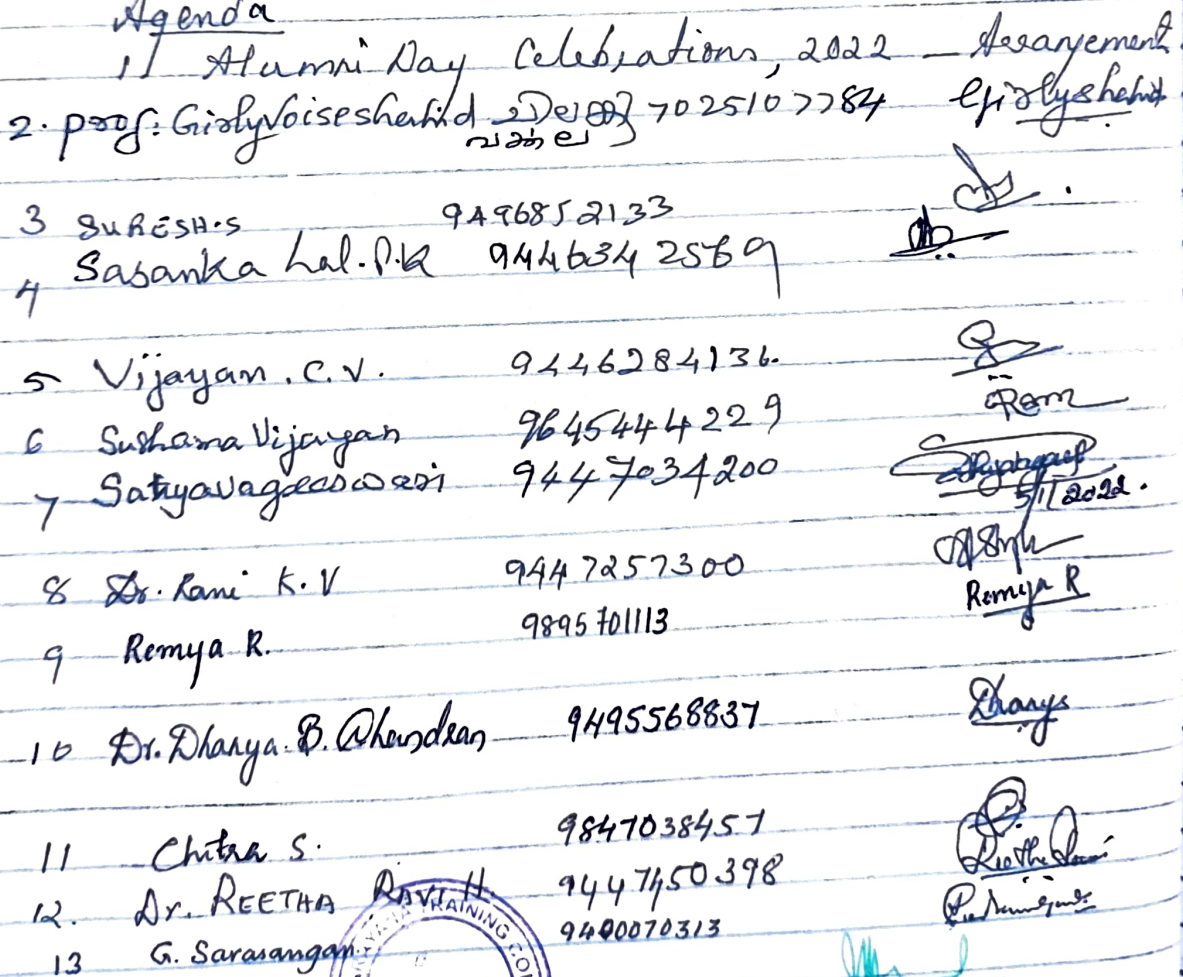 Agenda
1) Alumni Day Celebrations, 2022 - Arrangement
2. prof: GirlyVoiseshahid 7025107784 Girlyshahid
3 SURESH.S 9496852133
4 Sasanka Lal. P.K 9446342569
5 Vijayan. C.V. 9446284136.
6 Sushama Vijayan 9645444229
7 Satyavageeswari 9447034200
5/1/2022.
8 Dr. Rani K. V 9447257300
9 Remya R. 9895701113 Remya R
10 Dr. Dhanya. B. Chandran 9495568837 Dhanya
11 Chitra S. 9847038457
12. Dr. REETHA RAVI H. 9447450398
13 G. Sarasangan 9400070313
TRAINING CO